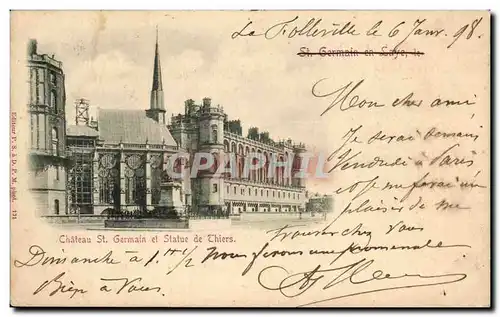 La Folleville le 6 Janv. 98
St. Germain en Laye, le
Mon cher ami
Je serai demain
Vendredi à Paris
et me ferai un
plaisir de
trouver chez Vous
Château St. Germain et Statue de Thiers.
Dimanche à 1 h 1/2 Nous ferons une promenade
Bien à Vous
CARTHAPOSTALE